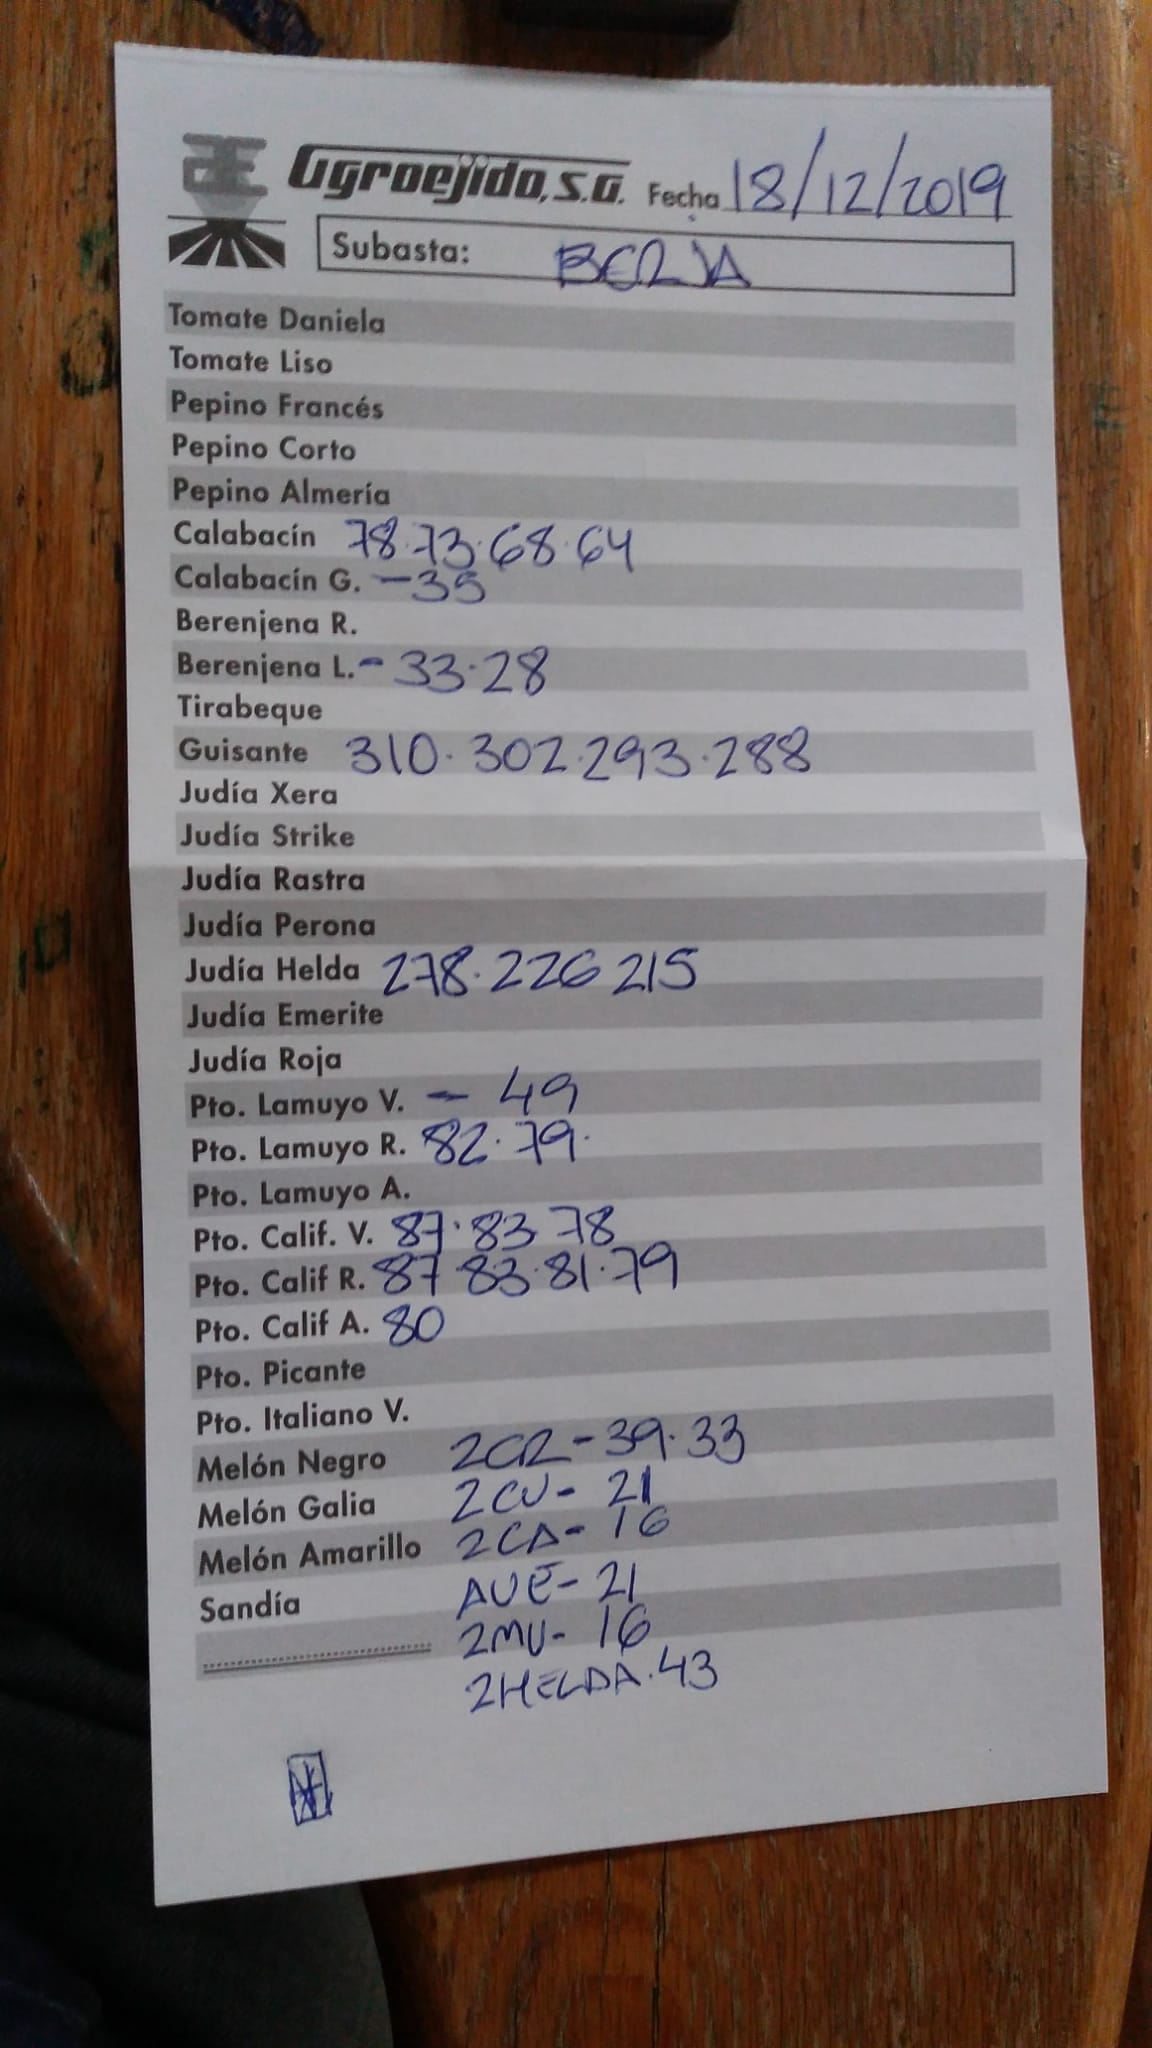 Agroejido, S.A. Fecha 18/12/2019
Subasta: BERJA
Tomate Daniela
Tomate Liso
Pepino Francés
Pepino Corto
Pepino Almería
Calabacín 78.73.68.64
Calabacín G. -35
Berenjena R.
Berenjena L. - 33.28
Tirabeque
Guisante 310.302.293.288
Judía Xera
Judía Strike
Judía Rastra
Judía Perona
Judía Helda 278.226 215
Judía Emerite
Judía Roja
Pto. Lamuyo V. - 49
Pto. Lamuyo R. 82.79.
Pto. Lamuyo A.
Pto. Calif. V. 87.83 78
Pto. Calif R. 87 83.81.79
Pto. Calif A. 80
Pto. Picante
Pto. Italiano V.
Melón Negro 2CR-39.33
Melón Galia 2CV- 21
Melón Amarillo 2CA- 16
Sandía AVE- 21
2MV- 16
2HELDA.43